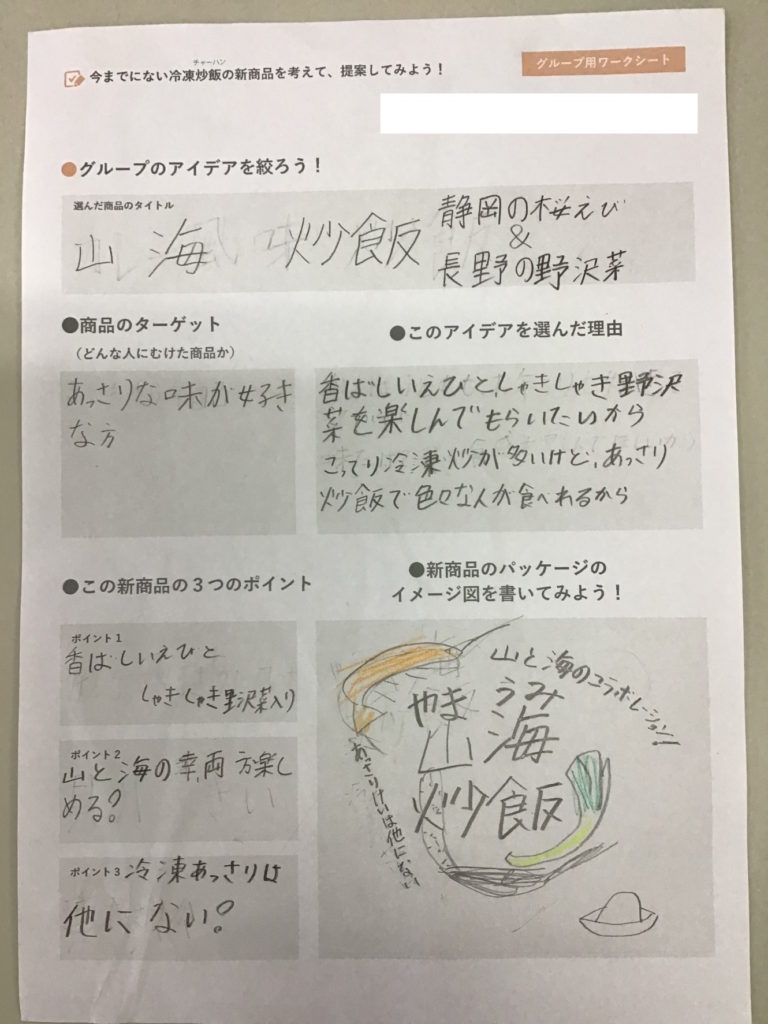 チャーハン
今までにない冷凍炒飯の新商品を考えて、提案してみよう！
グループ用ワークシート
●グループのアイデアを絞ろう！
選んだ商品のタイトル
山 海 炒飯
静岡の桜えび
&
長野の野沢菜
●商品のターゲット
（どんな人にむけた商品か）
あっさりな味が好き
な方
●このアイデアを選んだ理由
香ばしいえびと、しゃきしゃき野沢
菜を楽しんでもらいたいから
こってり冷凍炒が多いけど、あっさり
炒飯で色々な人が食べれるから
●この新商品の３つのポイント
ポイント１
香ばしいえびと
しゃきしゃき野沢菜入り
ポイント２
山と海の幸、両方楽し
める？
ポイント３
冷凍あっさりは
他にない？
●新商品のパッケージの
イメージ図を書いてみよう！
山と海のコラボレーション！
やま うみ
山 海
炒飯
あっさりけいは他にない